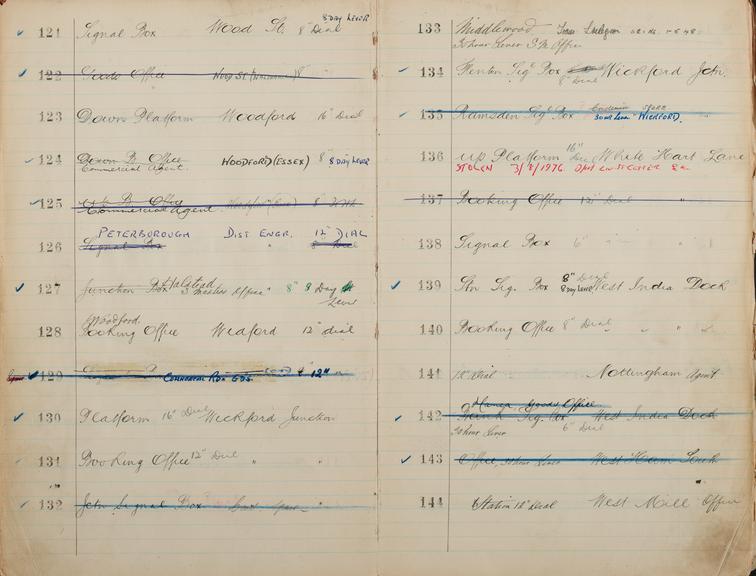 8 DAY LEVER
121 Signal Box Wood St. 8" Dial
122 Goods Office Wood St.
123 Down Platform Woodford 16" Dial
124 Down B. Office WOODFORD (ESSEX) 8" 8 DAY LEVER
Commercial Agent.
125 Up B Office
Commercial Agent
PETERBOROUGH DIST ENGR. 12" DIAL
126 Signal Box " 8" Dial
Halstead
127 Junction Box S Masters Office " 8" 8 Day
Lever
Woodford
128 Booking Office Widford 12" dial
129 COMMERCIAL RD GDS. 12"
130 Platform 16" Dial Wickford Junction
131 Booking Office 12" Dial " "
132 Jctn Signal Box
133 Middlewood
30 hour Lever S.M. Office
134 Fenton Sig Box Wickford Jctn.
8" Dial
135 Ramsden Sig Box STORE
30 hr Lever WICKFORD.
136 Up Platform 16" Dial White Hart Lane
STOLEN 3/8/1976
137 Booking Office 12" Dial
138 Signal Box 6" " " "
8" Dial
139 Stn Sig. Box 8 Day Lever West India Dock
140 Booking Office 8" Dial " " "
141 12" Dial Nottingham Agent
Goods Office
142 Sig. Box West India Dock
30 hour Lever 6" Dial
143 Office, 30 hour Lever West Ham South
144 Station 12" Dial West Mill Office